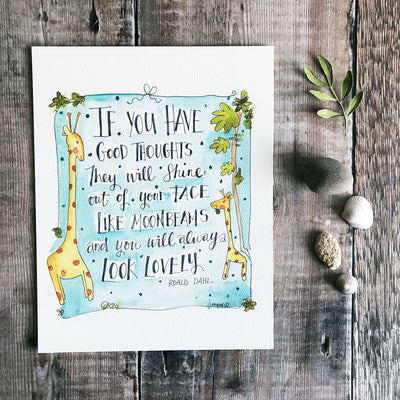 IF YOU HAVE
GOOD THOUGHTS
They will Shine
out of your FACE
LIKE MOONBEAMS
and you will always
LOOK LOVELY.
ROALD DAHL.